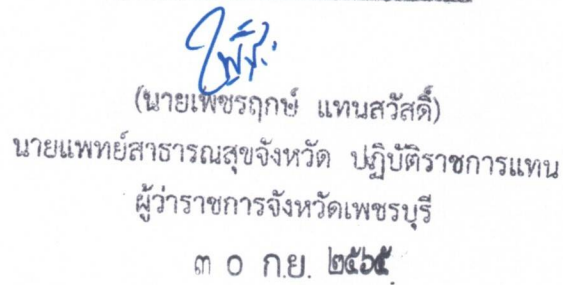 (นายเพ็ชรฤกษ์ แทนสวัสดิ์)
นายแพทย์สาธารณสุขจังหวัด ปฏิบัติราชการแทน
ผู้ว่าราชการจังหวัดเพชรบุรี
๓ ๐ ก.ย. ๒๕๖๕